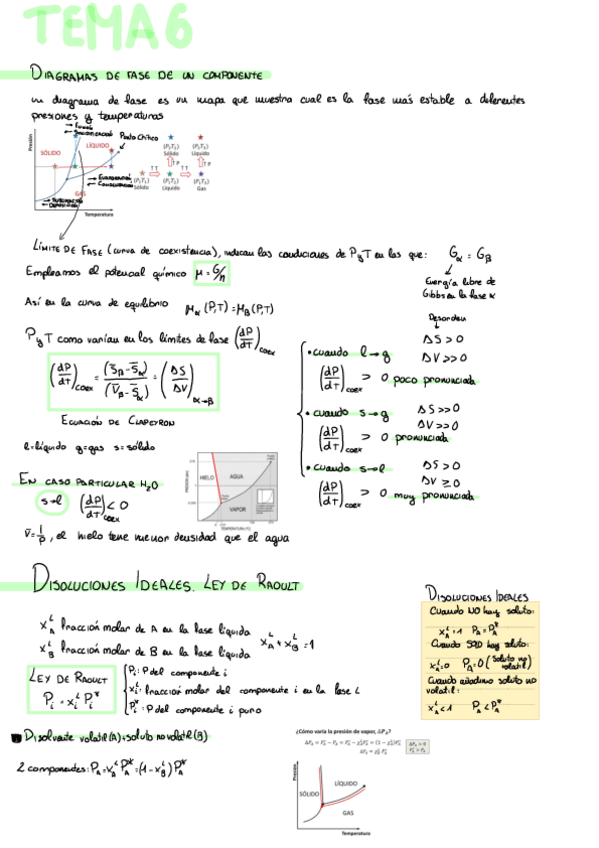 TEMA 6
DIAGRAMAS DE FASE DE UN COMPONENTE
un diagrama de fase es un mapa que muestra cual es la fase más estable a diferentes
presiones y temperaturas
Presión
SÓLIDO
LÍQUIDO
Punto Crítico
GAS
Temperatura
Sólido
Líquido
Sólido
Líquido
Gas
LÍMITE DE FASE (curva de coexistencia), indican las condiciones de P y T en las que: Gα = Gβ
Energía libre de
Gibbs en la fase α
Empleamos el potencial químico μ = G/n
Así en la curva de equilibrio μα (P,T) = μβ (P,T)
P y T como varían en los límites de fase (dP/dT)coex
(dP/dT)coex = (S̄β - S̄α)/(V̄β - S̄α) = (ΔS/ΔV)α→β
ECUACIÓN DE CLAPEYRON
l=líquido g=gas s=sólido
Desorden
• cuando l → g ΔS > 0
ΔV >> 0
(dP/dT)coex > 0 poco pronunciada
• cuando s → g ΔS >> 0
ΔV >> 0
(dP/dT)coex > 0 pronunciada
• cuando s → l ΔS > 0
ΔV ≥ 0
(dP/dT)coex > 0 muy pronunciada
EN CASO PARTICULAR H2O
s→l (dP/dT)coex < 0
HIELO
AGUA
VAPOR
V̄ = 1/ρ, el hielo tene menor densidad que el agua
DISOLUCIONES IDEALES. LEY DE RAOULT
xA^L fracción molar de A en la fase líquida
xB^L fracción molar de B en la fase líquida
xA^L + xB^L = 1
LEY DE RAOULT
Pi = xi^L Pi*
Pi: P del componente i
xi^L: fracción molar del componente i en la fase L
Pi*: P del componente i puro
DISOLUCIONES IDEALES
Cuando NO hay soluto:
xA^L = 1 PA = PA*
Cuando SOLO hay soluto:
xA^L = 0 PA = 0 (Soluto no volatil)
Cuando añadimos soluto no
volatil:
xA^L < 1 PA < PA*
Disolvente volatil (A) + soluto no volatil (B)
2 componentes: PA = xA^L PA* = (1 - xB^L) PA*
¿Cómo varía la presión de vapor, ΔPA?
ΔPA = PA* − PA = PA* − xA^L PA* = (1 − xA^L)PA*
ΔPA = xB^L PA*
ΔPA > 0
PA* > PA
Presión
SÓLIDO
LÍQUIDO
GAS
Temperatura